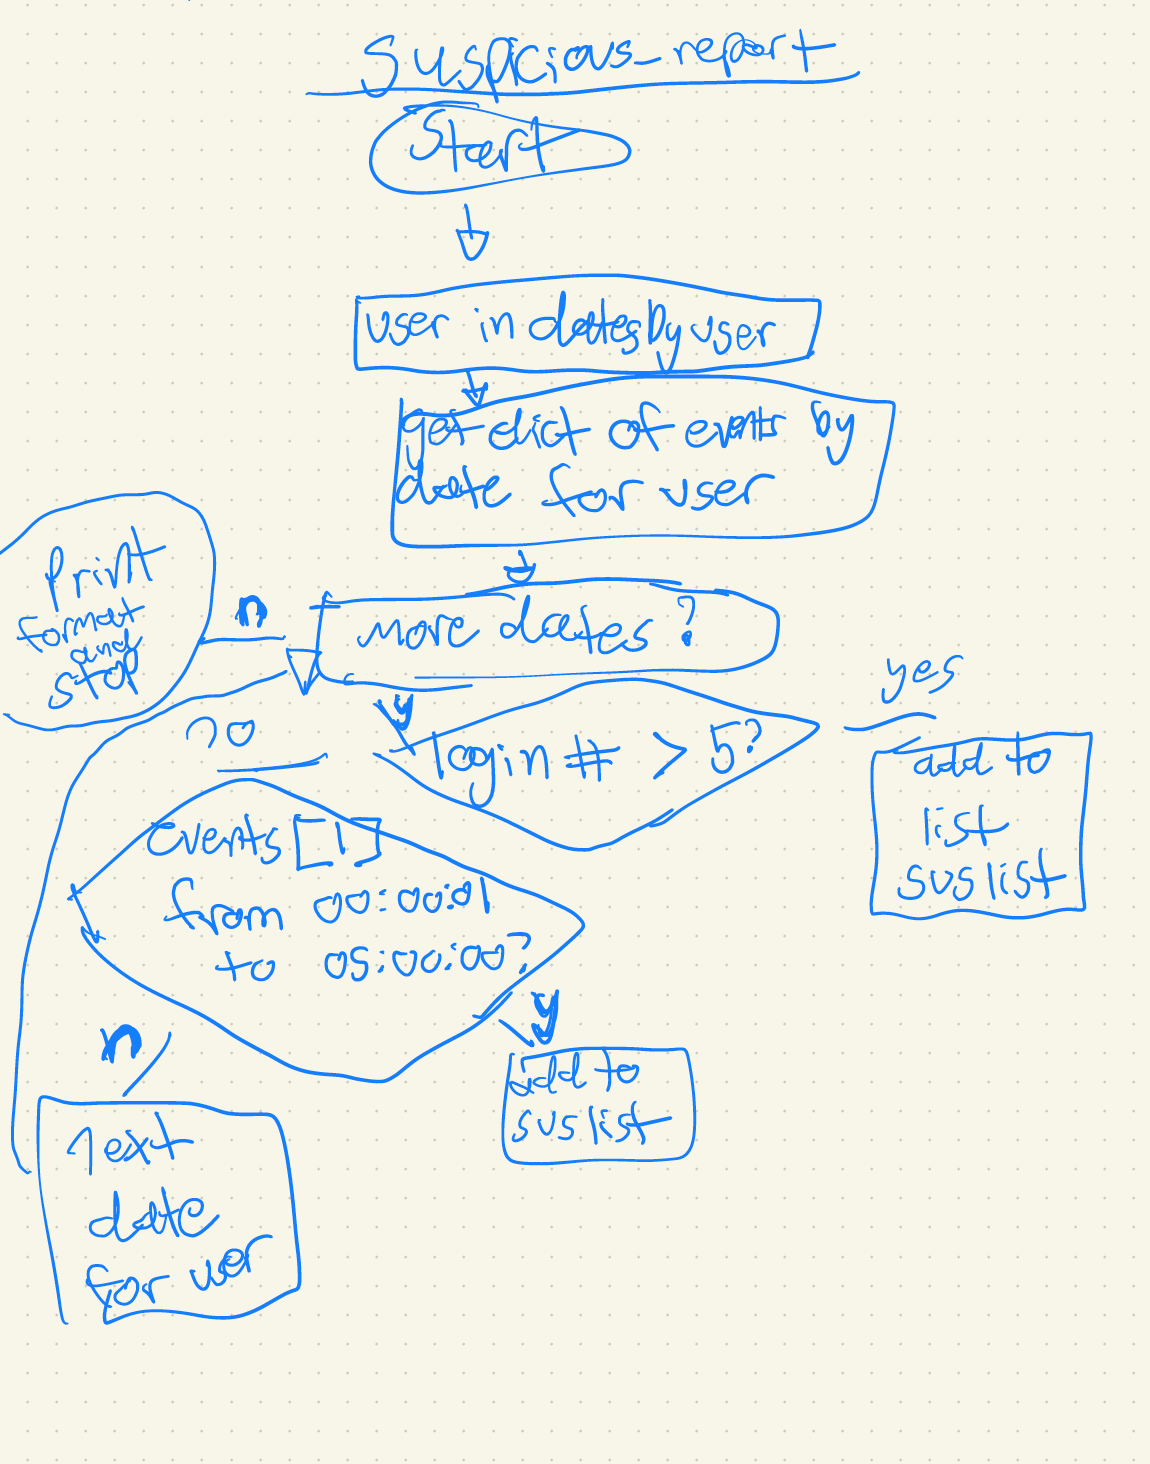 Suspicious_report
Start
user in datesbyuser
get dict of events by
date for user
more dates?
n
Print
format
and
stop
y
login # > 5?
yes
add to
list
suslist
no
events[1]
from 00:00:01
to 05:00:00?
y
add to
suslist
n
next
date
for user